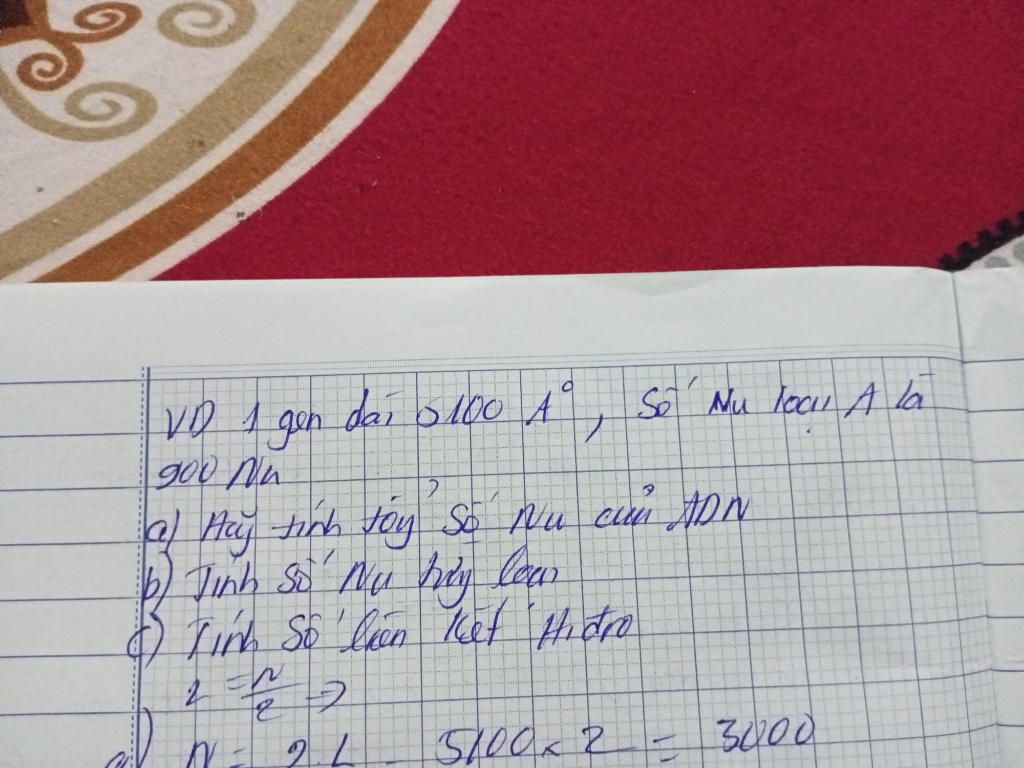 VD 1 gen dài 5100 A°, Số Nu loại A là
900 Nu
a) Hãy tính tổng số Nu của ADN
b) Tính số Nu từng loại
c) Tính số liên kết Hiđro
= N/2 =>
a) N = 2L 5100 x 2 = 3000